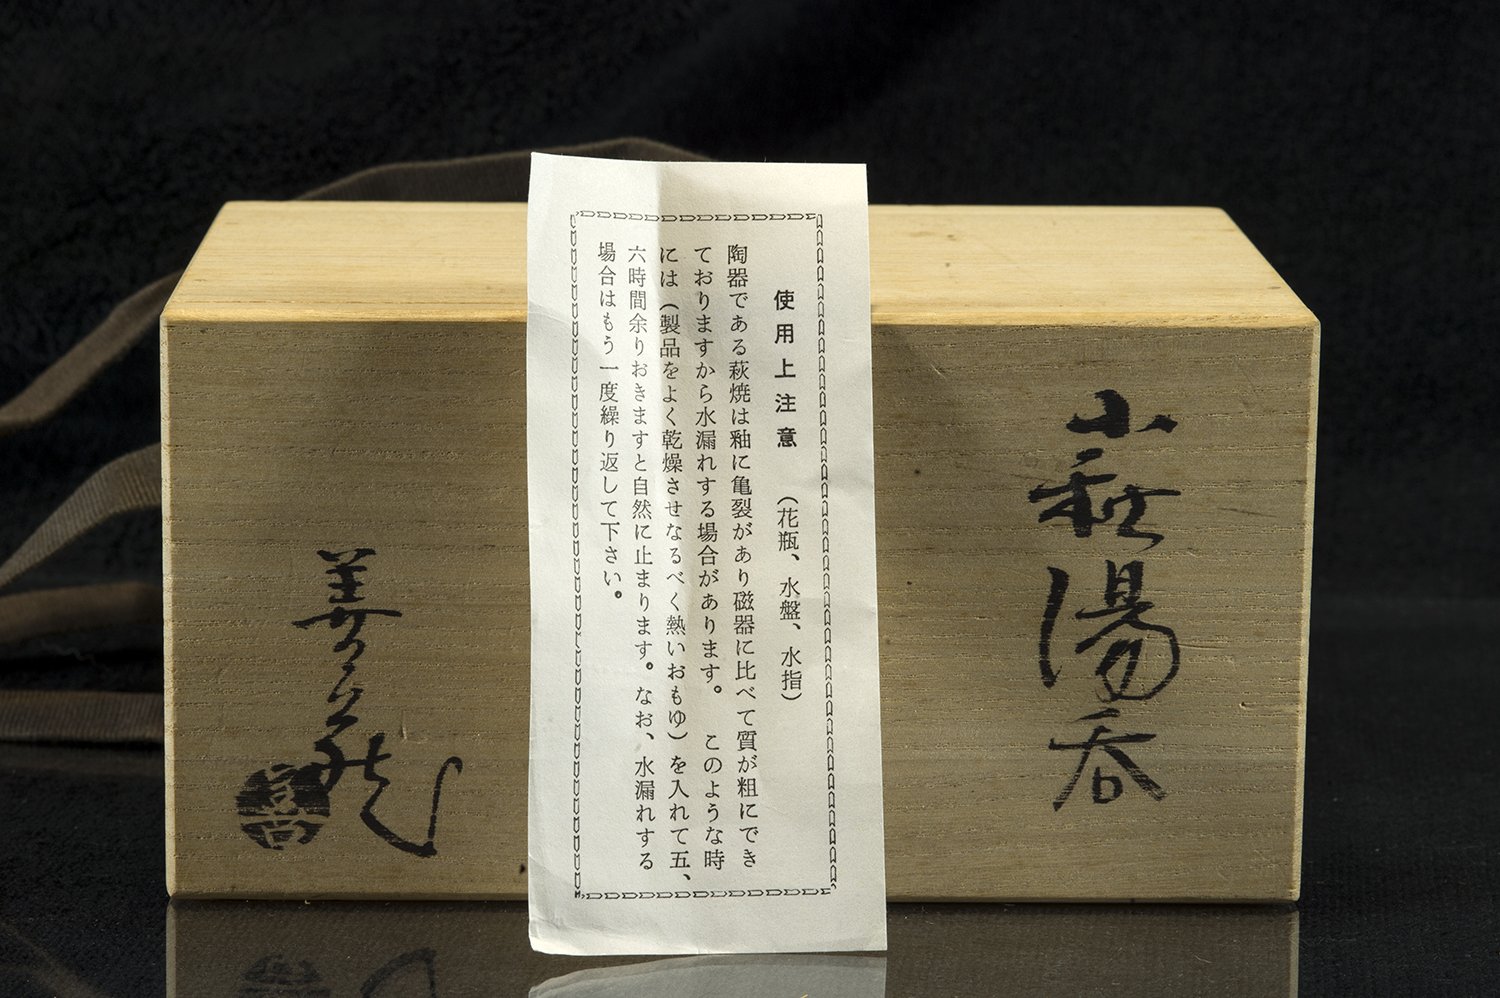 小萩湯呑
使用上注意 (花瓶、水盤、水指)
陶器である萩焼は釉に亀裂があり磁器に比べて質が粗にでき
ておりますから水漏れする場合があります。このような時
には(製品をよく乾燥させなるべく熱いおもゆ)を入れて五、
六時間余りおきますと自然に止まります。なお、水漏れする
場合はもう一度繰り返して下さい。